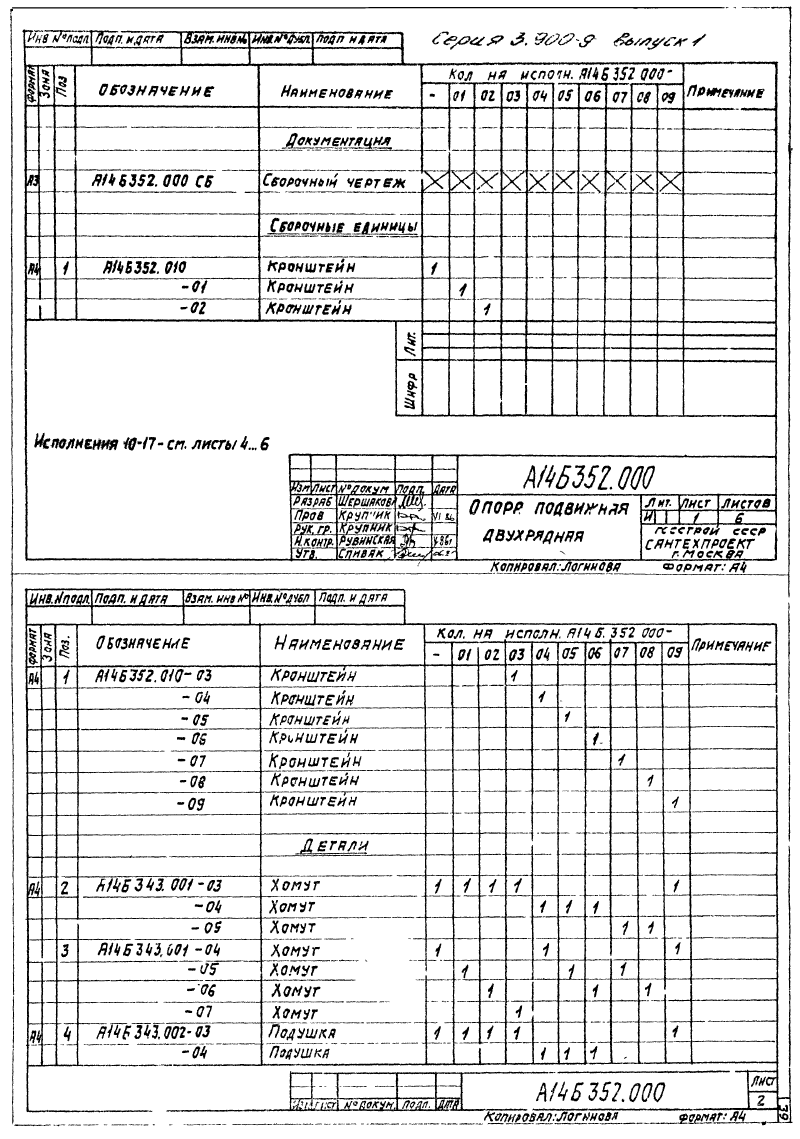 Серия 3.900-9 выпуск 1
Инв №подл Подп. и дата Взам. инв № Инв.№ дубл Подп и дата
Формат Зона Поз Обозначение Наименование Кол на исполн. А14Б352.000- Примечание
- 01 02 03 04 05 06 07 08 09
Документация
А3 А14Б352.000 СБ Сборочный чертеж X X X X X X X X X X
Сборочные единицы
А4 1 А14Б352.010 Кронштейн 1
-01 Кронштейн 1
-02 Кронштейн 1
Лит.
Шифр
Исполнения 10-17-см. листы 4...6
Изм Лист № докум Подп. Дата
Разраб Шершакова
Пров Крупник
Рук. гр. Крупник
Н.контр. Рувинская
Утв. Спивак
А14Б352.000
Опора подвижная двухрядная
Лит. Лист Листов
И 1 6
Госстрой СССР
Сантехпроект
г. Москва
Копировал: Логинова Формат: А4
Инв.№подл. Подп. и дата Взам. инв № Инв.№ дубл Подп. и дата
Формат Зона Поз. Обозначение Наименование Кол. на исполн. А14Б.352 000- Примечание
- 01 02 03 04 05 06 07 08 09
А4 1 А14Б352.010-03 Кронштейн 1
-04 Кронштейн 1
-05 Кронштейн 1
-06 Кронштейн 1
-07 Кронштейн 1
-08 Кронштейн 1
-09 Кронштейн 1
Детали
А4 2 А14Б343.001-03 Хомут 1 1 1 1 1
-04 Хомут 1 1 1
-05 Хомут 1 1
3 А14Б343.001-04 Хомут 1 1 1
-05 Хомут 1 1 1
-06 Хомут 1 1 1
-07 Хомут 1
А4 4 А14Б343.002-03 Подушка 1 1 1 1 1
-04 Подушка 1 1 1
Изм Лист № докум. Подп. Дата
А14Б352.000
Лист
2
Копировал: Логинова Формат: А4
39